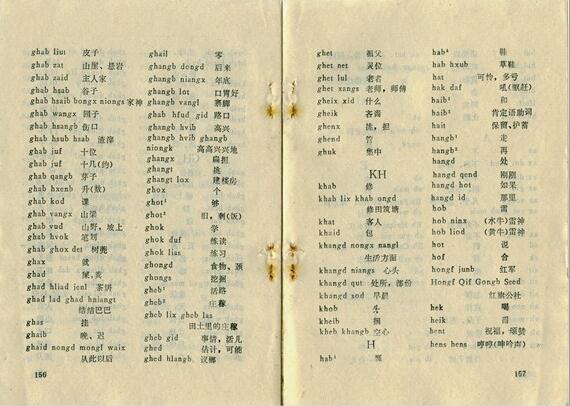 ghab liut 皮子
ghab zat 山崖、悬岩
ghab zaid 主人家
ghab hsab 谷子
ghab hsaib bongx niongs 家神
ghab wangx 园子
ghab hsangb 伤口
ghab hsub hsab 渣滓
ghab juf 十位
ghab juf 十几(约)
ghab qangb 芽子
ghab hxenb 升(数)
ghab kod 课
ghab vangx 山梁
ghab vud 山野，坡上
ghab hvok 笔划
ghab ghox det 树蔸
ghax 就
ghad
ghad hliad jenl 茶饼
ghad lad ghad hniangt
结结巴巴
ghas 挂
ghaib 晚、迟
ghaid nongd mongl waix
从此以后
156
ghail 零
ghangb dongd 后来
ghangb niangx 年底
ghangb lot 口胃好
ghangb vangl 寨脚
ghab hfud gid 路口
ghangb hvib 高兴
ghangb hvib ghangb
niongk 高高兴兴地
ghangx 扁担
ghangt 挑
ghangt lox 建楼房
ghox 个
ghot¹ 够
ghot² 旧，剩(饭)
ghok 学
ghok duf 练读
ghok lias 练习
ghongd 食物、颈
ghongs 挖掘
gheb¹ 活路
gheb² 庄稼
gheb lix gheb las
田土里的庄稼
gheb gid 事情，活儿
ghed 估计，可能
ghed hlangb 议榔
ghet 祖父
ghet net 灵位
ghet lul 老者
ghet xangs 老师，师傅
gheix xid 什么
gheik 吝啬
ghenx 挑，担
ghend 管
ghuk 集中
KH
khab 修
khab lix khab ongd
修田筑塘
khat 客人
khaid 包
khangd nongx nangl
生活方面
khangd niangs 心头
khangd qut 处所，部份
khangd xod 早晨
khob 斗
kheib 捆
kheb khangb 空心
H
hab¹
hab¹ 鞋
hab hxub 草鞋
hat 可怜，多亏
hak daf 吼(驱赶)
haib¹ 和
haib² 肯定语助词
hait 保留、护蓄
hangb¹ 走
hangb² 再
hangd 处
hangd qend 刚刚
hangd hot 如果
hangd id 那里
hob 雷
hob ninx (水牛)雷神
hob liod (黄牛)雷神
hot 说
hof 合
hongf junb 红军
Hongf Qif Gongb Seed
红旗公社
hek 喝
heik 舀
hent 祝福，颂赞
hens hens 哼哼(呻吟声)
157